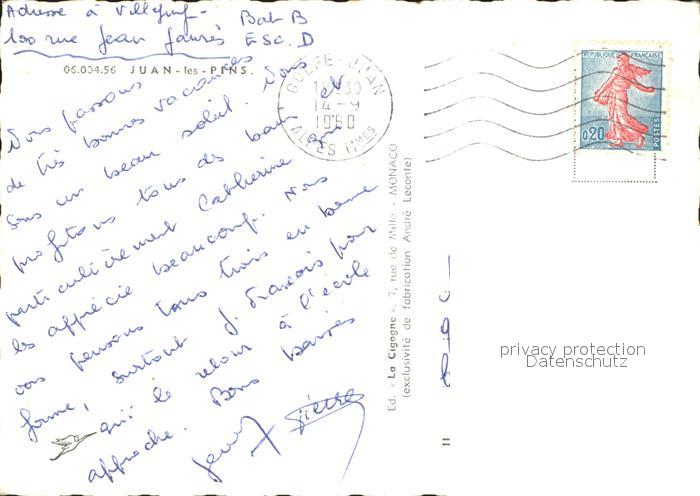 Adresse à Villejuif - Bat B
100 rue Jean Jaurès ESC. D
06.034.56 JUAN-les-PINS.
Nous passons
de très bonnes vacances
sous un beau soleil. Nous
profitons tous des bains et
particulièrement Catherine qui
les apprécie beaucoup. Nous
vous pensons tous trois en bonne
forme, surtout J. François pour
qui le retour à l'école
approche. Bons baisers
Pierre
GOLFE-JUAN
14-9
1960
ALPES MMES
REPUBLIQUE FRANÇAISE
0,20
POSTES
Ed. « La Cigogne », 7, rue de Millo - MONACO
(exclusivité de fabrication André Leconte)
11
privacy protection
Datenschutz